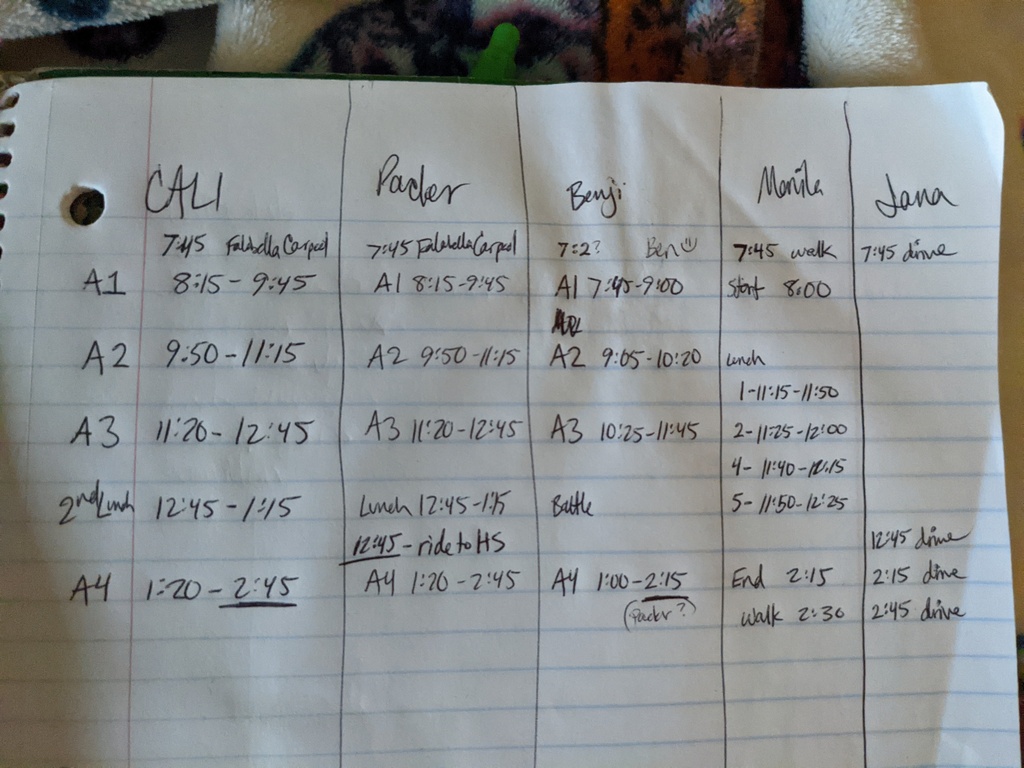 CALI Packer Benji Manila Jana
7:45 Falabella Carpool 7:45 Falabella Carpool 7:2? Ben☺ 7:45 walk 7:45 drive
A1 8:15-9:45 A1 8:15-9:45 A1 7:45-9:00 Start 8:00
A2 9:50-11:15 A2 9:50-11:15 A2 9:05-10:20 Lunch
1-11:15-11:50
A3 11:20-12:45 A3 11:20-12:45 A3 10:25-11:45 2-11:25-12:00
4-11:40-12:15
2nd Lunch 12:45-1:15 Lunch 12:45-1:15 5-11:50-12:25
12:45-ride to HS 12:45 drive
A4 1:20-2:45 A4 1:20-2:45 A4 1:00-2:15 End 2:15 2:15 drive
(Packer?) walk 2:30 2:45 drive